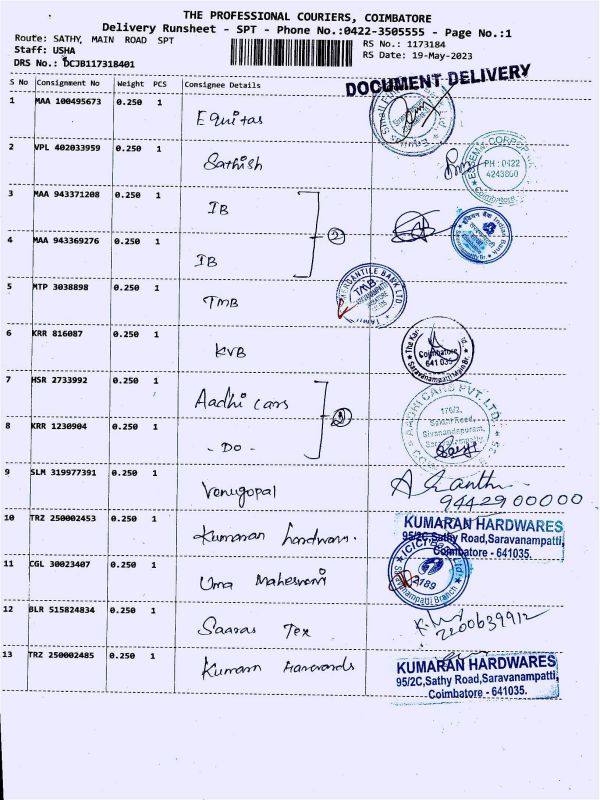 THE PROFESSIONAL COURIERS, COIMBATORE
Delivery Runsheet - SPT - Phone No.:0422-3505555 - Page No.:1
Route: SATHY, MAIN ROAD SPT
RS No.: 1173184
Staff: USHA
RS Date: 19-May-2023
DRS No.: DCJB117318401
DOCUMENT DELIVERY
S No Consignment No Weight PCS Consignee Details
1 MAA 100495673 0.250 1 Equitas
2 VPL 402033959 0.250 1 Sathish
PH : 0422
4243800
Coimbatore
3 MAA 943371208 0.250 1 IB
2
4 MAA 943369276 0.250 1 IB
5 MTP 3038898 0.250 1 TMB
MERCANTILE BANK LTD
TMB
6 KRR 816087 0.250 1 KVB
Coimbatore
641 035
7 HSR 2733992 0.250 1 Aadhi cars
AADHI CARS PVT. LTD.
176/2,
Sathy Road,
Sivanandapuram,
8 KRR 1230904 0.250 1 - Do -
9 SLM 319977391 0.250 1 Venugopal
9442900000
10 TRZ 250002453 0.250 1 Kumaran hardware.
KUMARAN HARDWARES
95/2C,Sathy Road,Saravanampatti,
Coimbatore - 641035.
11 CGL 30023407 0.250 1 Uma Maheswari
ICICI Bank Ltd
Saravanampatti Branch
12 BLR 515824834 0.250 1 Saaras Tex
13 TRZ 250002485 0.250 1 Kumaran
KUMARAN HARDWARES
95/2C,Sathy Road,Saravanampatti,
Coimbatore - 641035.